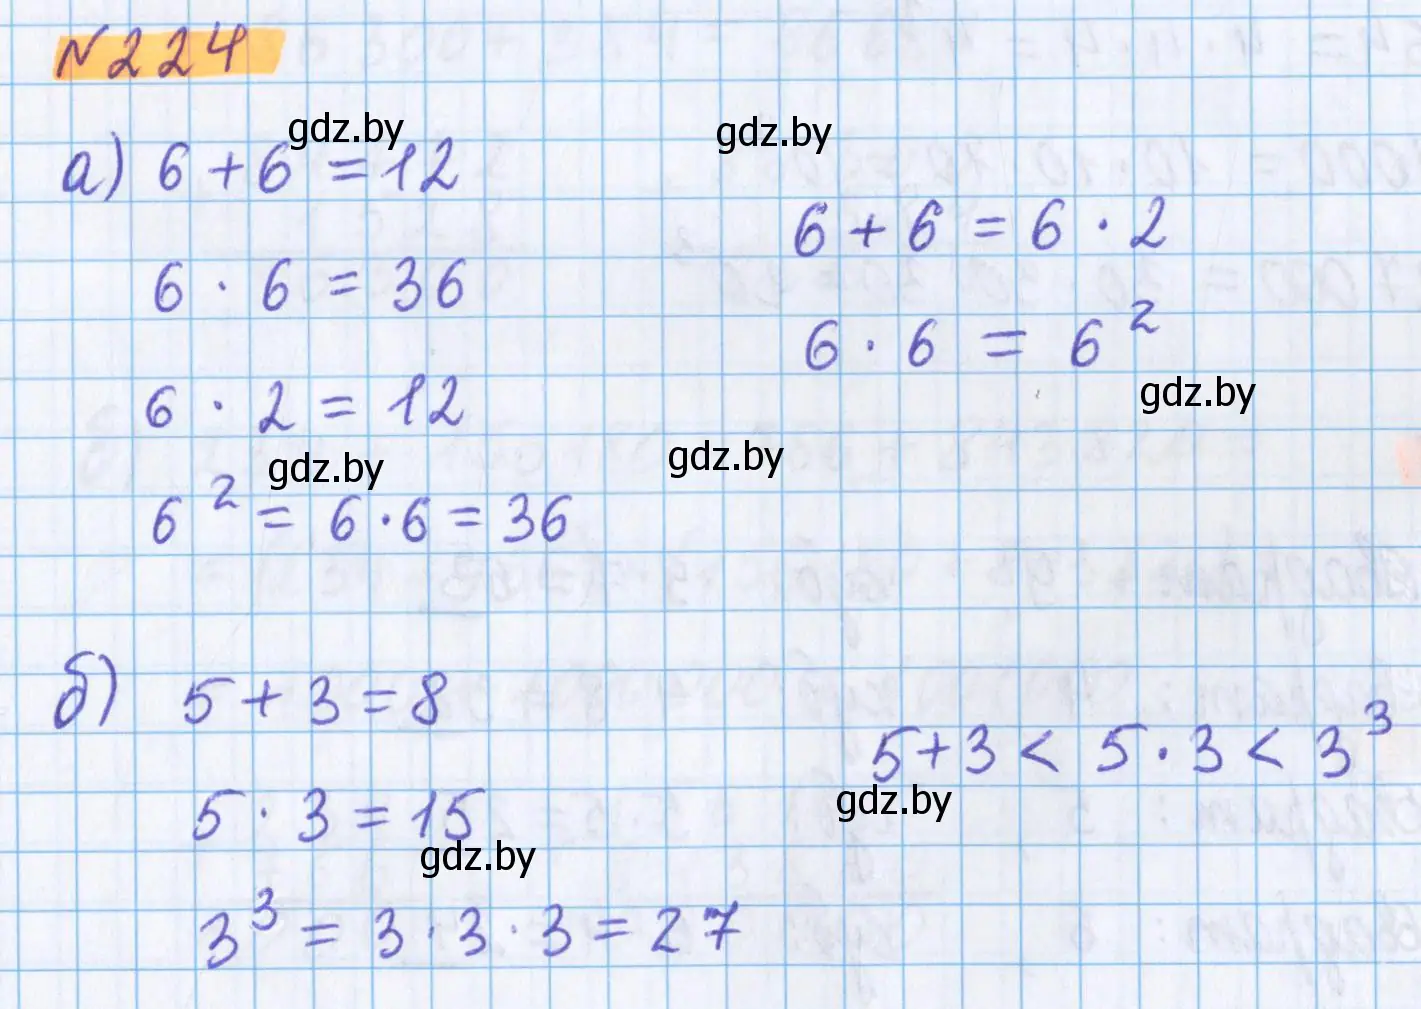 N224
а) 6 + 6 = 12
6 · 6 = 36
6 · 2 = 12
6² = 6 · 6 = 36
6 + 6 = 6 · 2
6 · 6 = 6²
б) 5 + 3 = 8
5 · 3 = 15
3³ = 3 · 3 · 3 = 27
5 + 3 < 5 · 3 < 3³
gdz.by
gdz.by
gdz.by
gdz.by
gdz.by
gdz.by
gdz.by